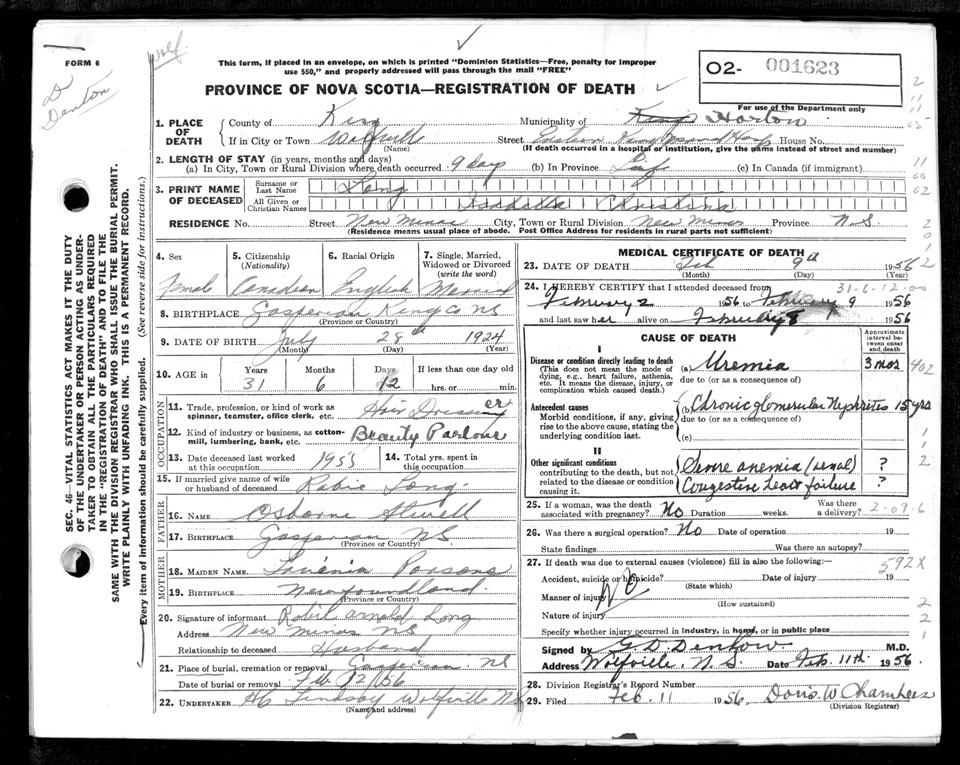 FORM 6
D
Denton
Wolf.
This form, if placed in an envelope, on which is printed "Dominion Statistics—Free, penalty for improper
use $50," and properly addressed will pass through the mail "FREE"
PROVINCE OF NOVA SCOTIA—REGISTRATION OF DEATH
O2- 001623
For use of the Department only
1. PLACE OF DEATH
County of Kings Municipality of Kings Horton
If in City or Town Wolfville (Name) Street Eastern Kings Memorial Hosp House No.
(If death occurred in a hospital or institution, give the name instead of street and number)
2. LENGTH OF STAY (in years, months and days)
(a) In City, Town or Rural Division where death occurred 9 days (b) In Province Life (c) In Canada (if immigrant)
3. PRINT NAME OF DECEASED
Surname or Last Name Long
All Given or Christian Names Isabella Christina
RESIDENCE No. Street New Minas City, Town or Rural Division New Minas Province N.S
(Residence means usual place of abode. Post Office Address for residents in rural parts not sufficient)
4. Sex Female
5. Citizenship (Nationality) Canadian
6. Racial Origin English
7. Single, Married, Widowed or Divorced (write the word) Married
8. BIRTHPLACE Gasperian Kings Co NS
(Province or Country)
9. DATE OF BIRTH July 28th 1924
(Month) (Day) (Year)
10. AGE in Years 31 Months 6 Days 12 If less than one day old hrs. or min.
OCCUPATION
11. Trade, profession, or kind of work as spinner, teamster, office clerk. etc. Hair Dresser
12. Kind of industry or business, as cotton-mill, lumbering, bank, etc. Beauty Parlour
13. Date deceased last worked at this occupation 1955
14. Total yrs. spent in this occupation
15. If married give name of wife or husband of deceased Robie Long
FATHER
16. NAME Osborne Atwell
17. BIRTHPLACE Gasperian NS
(Province or Country)
MOTHER
18. MAIDEN NAME Parsons
19. BIRTHPLACE Newfoundland
(Province or Country)
20. Signature of informant Robie Arnold Long
Address New Minas NS
Relationship to deceased Husband
21. Place of burial, cremation or removal Gasperian NS
Date of burial or removal Feb 12/56
22. UNDERTAKER Lindsay Wolfville NS
(Name and address)
MEDICAL CERTIFICATE OF DEATH
23. DATE OF DEATH Feb 9th 1956
(Month) (Day)
31-6-12-00
24. I HEREBY CERTIFY that I attended deceased from
February 2 1956 to February 9 1956
and last saw her alive on February 8 1956
CAUSE OF DEATH
Approximate interval between onset and death
I
Disease or condition directly leading to death
(This does not mean the mode of dying, e.g., heart failure, asthenia, etc. It means the disease, injury, or complication which caused death.)
(a) Uremia 3 mos
due to (or as a consequence of)
Antecedent causes
Morbid conditions, if any, giving rise to the above cause, stating the underlying condition last.
(b) Chronic glomerular Nephritis 15 yrs
due to (or as a consequence of)
(c)
II
Other significant conditions
contributing to the death, but not related to the disease or condition causing it.
Severe anemia (renal) ?
Congestive heart failure ?
25. If a woman, was the death associated with pregnancy? No Duration weeks. Was there a delivery?
2-09-6
26. Was there a surgical operation? No Date of operation 19
State findings Was there an autopsy?
27. If death was due to external causes (violence) fill in also the following:—
592X
Accident, suicide or homicide? (State which) Date of injury 19
Manner of injury No (How sustained)
Nature of injury
Specify whether injury occurred in industry, in home, or in public place
Signed by G. D. Denton M.D.
Address Wolfville, N. S. Date Feb. 11th. 1956.
28. Division Registrar's Record Number
29. Filed Feb. 11 1956, Doris W Chambers
(Division Registrar)
SEC. 46—VITAL STATISTICS ACT MAKES IT THE DUTY
OF THE UNDERTAKER OR PERSON ACTING AS UNDER-
TAKER TO OBTAIN ALL THE PARTICULARS REQUIRED
IN THE "REGISTRATION OF DEATH" AND TO FILE THE
SAME WITH THE DIVISION REGISTRAR WHO SHALL ISSUE THE BURIAL PERMIT.
WRITE PLAINLY WITH UNFADING INK. THIS IS A PERMANENT RECORD.
Every item of information should be carefully supplied. (See reverse side for instructions.)